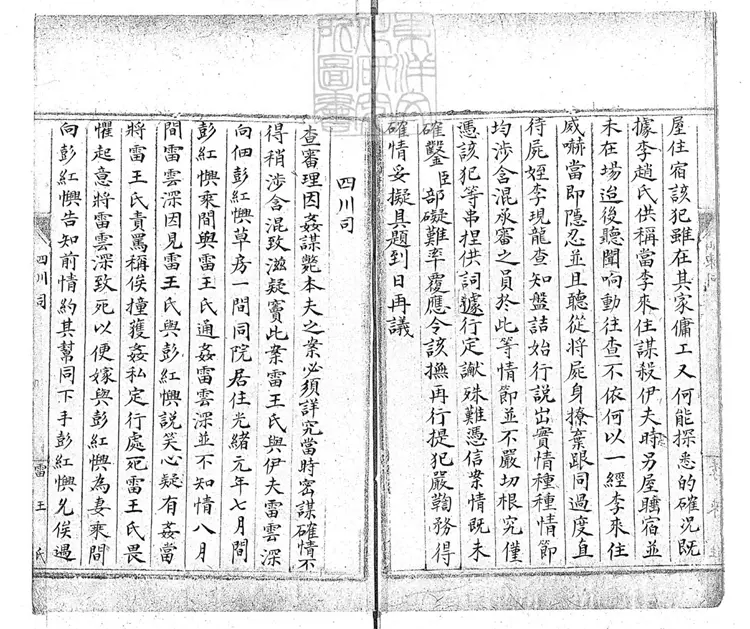 屋住宿該犯雖在其家傭工又何能探悉的確況既
據李趙氏供稱當李來住謀殺伊夫時另屋睡宿並
未在場迨後聽聞响動往查不依何以一經李來住
威嚇當即隱忍並且聽從將屍身撩棄跟同過度直
待屍姪李現龍查知盤詰始行說出實情種種情節
均涉含混承審之員於此等情節並不嚴切根究僅
憑該犯等串捏供詞據行定讞殊難憑信案情既未
確鑿臣部礙難率覆應令該撫再行提犯嚴鞫務得
確情妥擬具題到日再議
四川司
查審理因姦謀斃本夫之案必須詳究當時密謀確情不
得稍涉含混致滋疑竇此案雷王氏與伊夫雷雲深
向佃彭紅懊草房一間同院居住光緒元年七月間
彭紅懊乘間與雷王氏通姦雷雲深並不知情八月
間雷雲深因見雷王氏與彭紅懊說笑心疑有姦當
將雷王氏責罵稱俟撞獲姦私定行處死雷王氏畏
懼起意將雷雲深致死以便嫁與彭紅懊為妻乘間
向彭紅懊告知前情約其幫同下手彭紅懊允俟遇
四川司
雷王氏